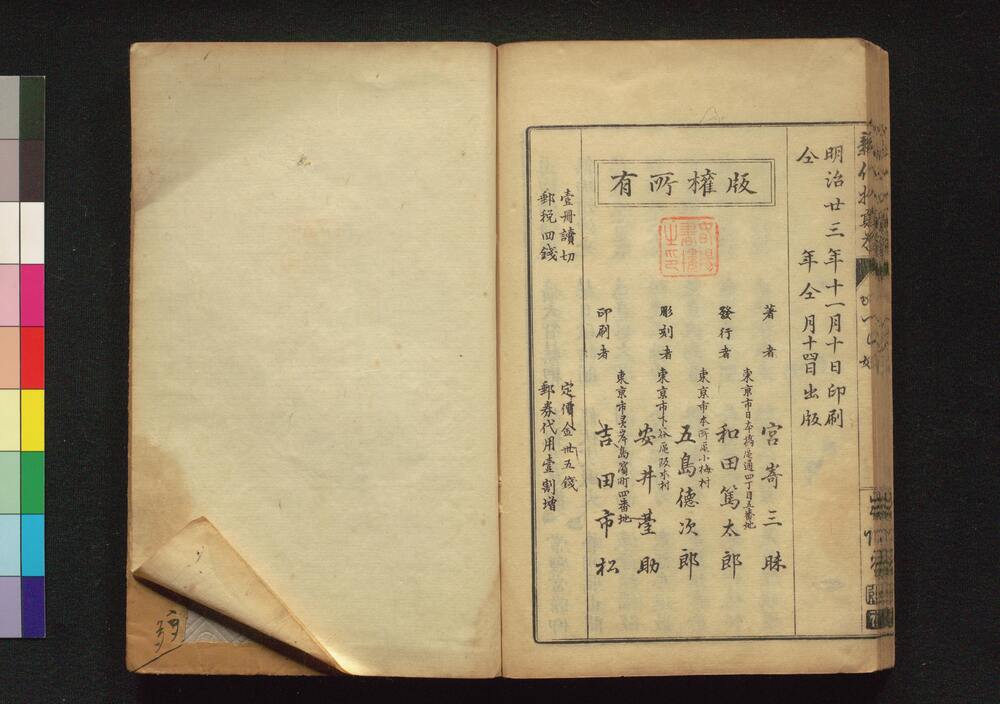 明治廿三年十一月十日印刷
仝年仝月十四日出版
版權所有
著者
宮嵜三昧
東京市日本橋區通四丁目五番地
發行者
和田篤太郎
東京市本所區小梅村
五島德次郎
彫刻者
東京市下谷區阪本村
安井臺助
東京市灵岸島濱町四番地
印刷者
吉田市松
壹冊讀切
定價金卅五錢
郵税四錢
郵券代用壹割增